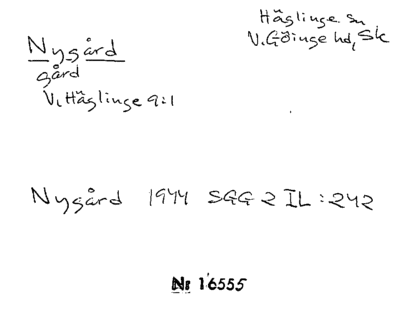 Nygård
gård
V. Häglinge 9:1
Häglinge sn
V. Göinge hd, Sk
Nygård 1944 SGG 2 IL :242
Nr 16555